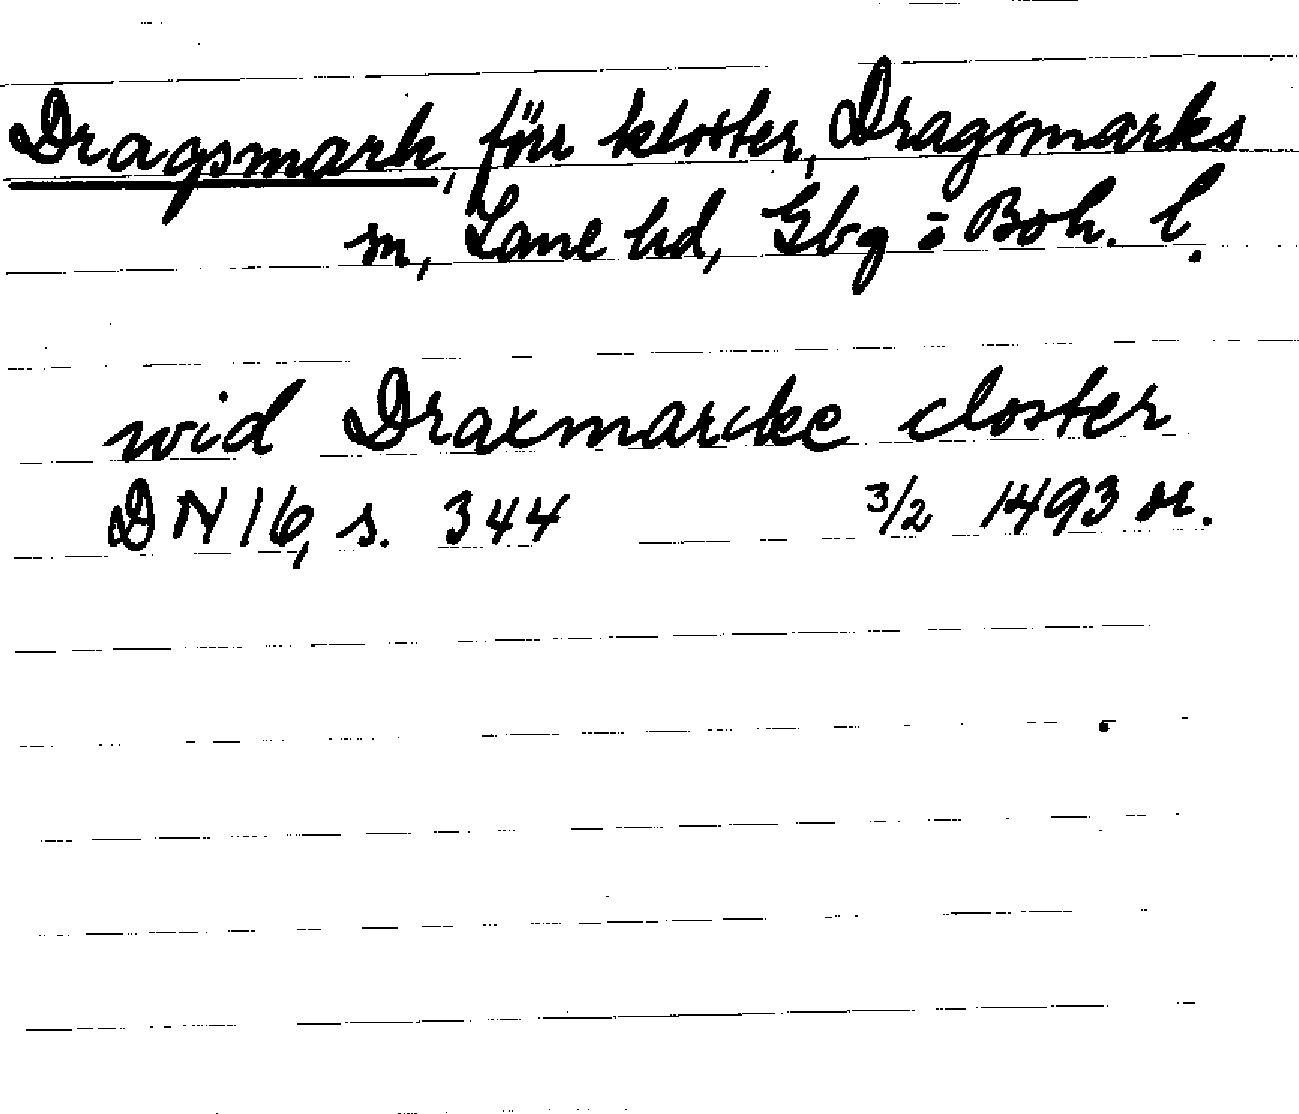 Dragsmark, förr kloster, Dragsmarks
sn, Lane hd, Gbg o Boh. l.
wid Draxmarcke closter
DN 16, s. 344 3/2 1493 or.